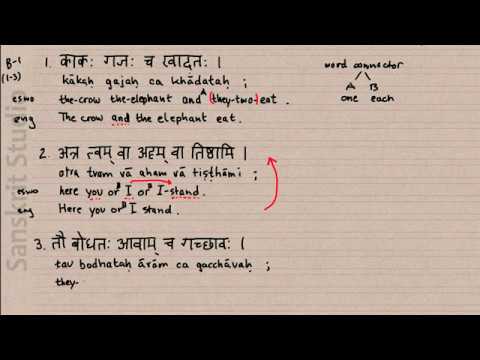 Sanskrit Studio
8-1
(1-3)
1. काकः गजः च खादतः ।
kākaḥ gajaḥ ca khādataḥ ;
eswo the-crow the-elephant and (they-two-) eat .
A
eng The crow and the elephant eat .
word connector
A B
one each
2. अत्र त्वम् वा अहम् वा तिष्ठामि ।
atra tvam vā aham vā tiṣṭhāmi ;
eswo here you or I or I-stand .
B B
eng Here you or I stand .
B
3. तौ बोधतः आवाम् च गच्छावः ।
tau bodhataḥ āvām ca gacchāvaḥ ;
they-